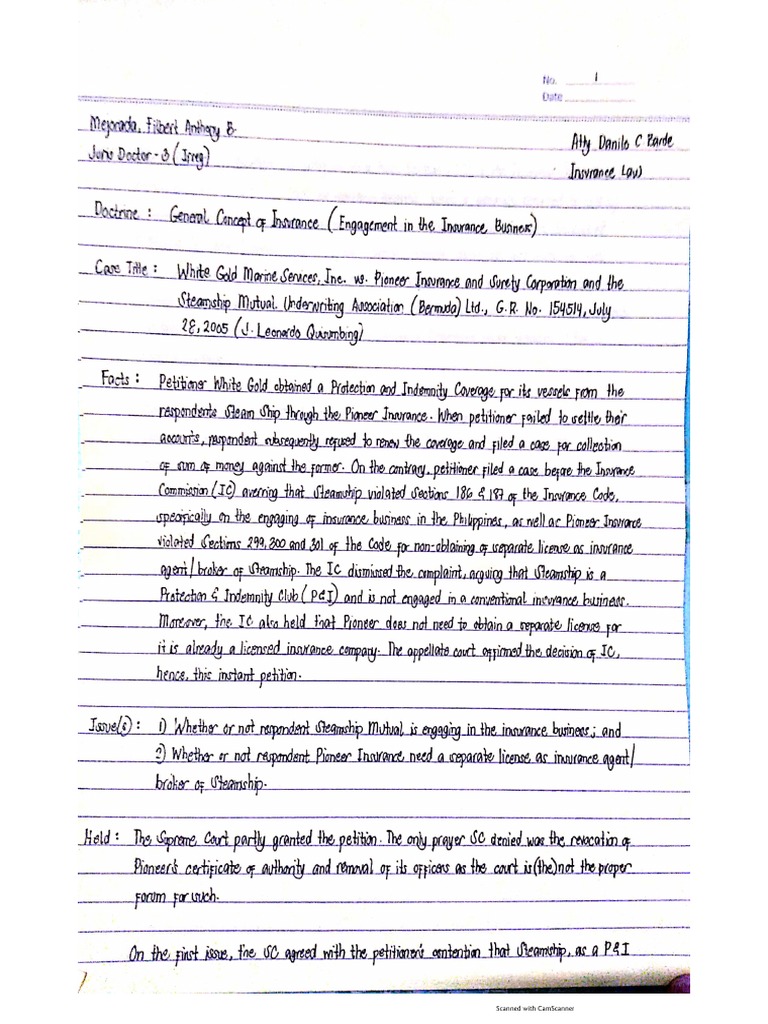 No. 1
Date
Mejorada, Filbert Anthony B.
Atty Danilo C Barde
Juris Doctor - 3 (Irreg)
Insurance Law
Doctrine : General Concept of Insurance (Engagement in the Insurance Business)
Case Title : White Gold Marine Services, Inc. vs. Pioneer Insurance and Surety Corporation and the
Steamship Mutual Underwriting Association (Bermuda) Ltd., G.R. No. 154514, July
28, 2005 (J. Leonardo Quisumbing)
Facts : Petitioner White Gold obtained a Protection and Indemnity Coverage for its vessels from the
respondents Steam Ship through the Pioneer Insurance. When petitioner failed to settle their
accounts, respondent subsequently refused to renew the coverage and filed a case for collection
of sum of money against the former. On the contrary, petitioner filed a case before the Insurance
Commission (IC) averring that Steamship violated Sections 186 & 187 of the Insurance Code,
specifically on the engaging of insurance business in the Philippines, as well as Pioneer Insurance
violated Sections 299, 300 and 301 of the Code for non-obtaining of separate license as insurance
agent/broker of Steamship. The IC dismissed the complaint, arguing that Steamship is a
Protection & Indemnity Club (P&I) and is not engaged in a conventional insurance business.
Moreover, the IC also held that Pioneer does not need to obtain a separate license for
it is already a licensed insurance company. The appellate court affirmed the decision of IC,
hence, this instant petition.
Issue(s) : 1) Whether or not respondent Steamship Mutual is engaging in the insurance business; and
2) Whether or not respondent Pioneer Insurance need a separate license as insurance agent/
broker of Steamship.
Held : The Supreme Court partly granted the petition. The only prayer SC denied was the revocation of
Pioneer's certificate of authority and removal of its officers as the court is (the) not the proper
forum for such.
On the first issue, the SC agreed with the petitioner's contention that Steamship, as a P&I
Scanned with CamScanner